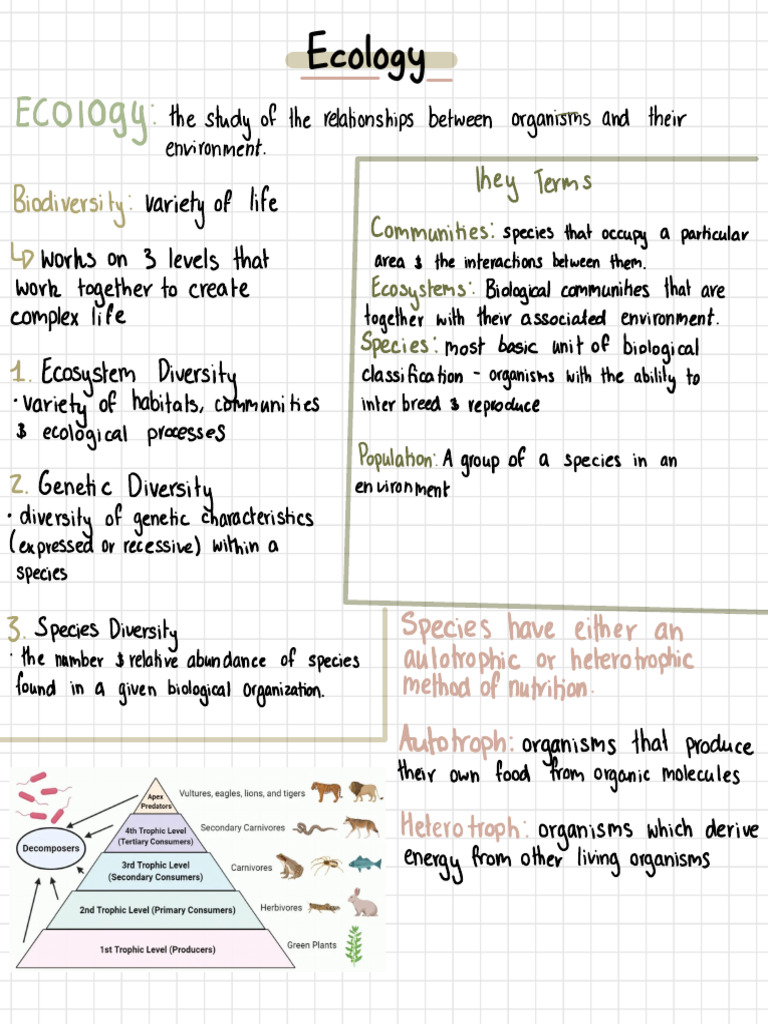 Ecology
Ecology: the study of the relationships between organisms and their
environment.
Biodiversity: variety of life
↳ works on 3 levels that
work together to create
complex life
1. Ecosystem Diversity
· variety of habitals, communities
& ecological processes
2. Genetic Diversity
· diversity of genetic characteristics
(expressed or recessive) within a
species
3. Species Diversity
· the number & relative abundance of species
found in a given biological organization.
Key Terms
Communities: species that occupy a particular
area & the interactions between them.
Ecosystems: Biological communities that are
together with their associated environment.
Species: most basic unit of biological
classification - organisms with the ability to
inter breed & reproduce
Population: A group of a species in an
environment
Species have either an
autotrophic or heterotrophic
method of nutrition.
Autotroph: organisms that produce
their own food from organic molecules
Heterotroph: organisms which derive
energy from other living organisms
Decomposers
Apex
Predators
Vultures, eagles, lions, and tigers
4th Trophic Level
(Tertiary Consumers)
Secondary Carnivores
3rd Trophic Level
(Secondary Consumers)
Carnivores
2nd Trophic Level (Primary Consumers)
Herbivores
1st Trophic Level (Producers)
Green Plants